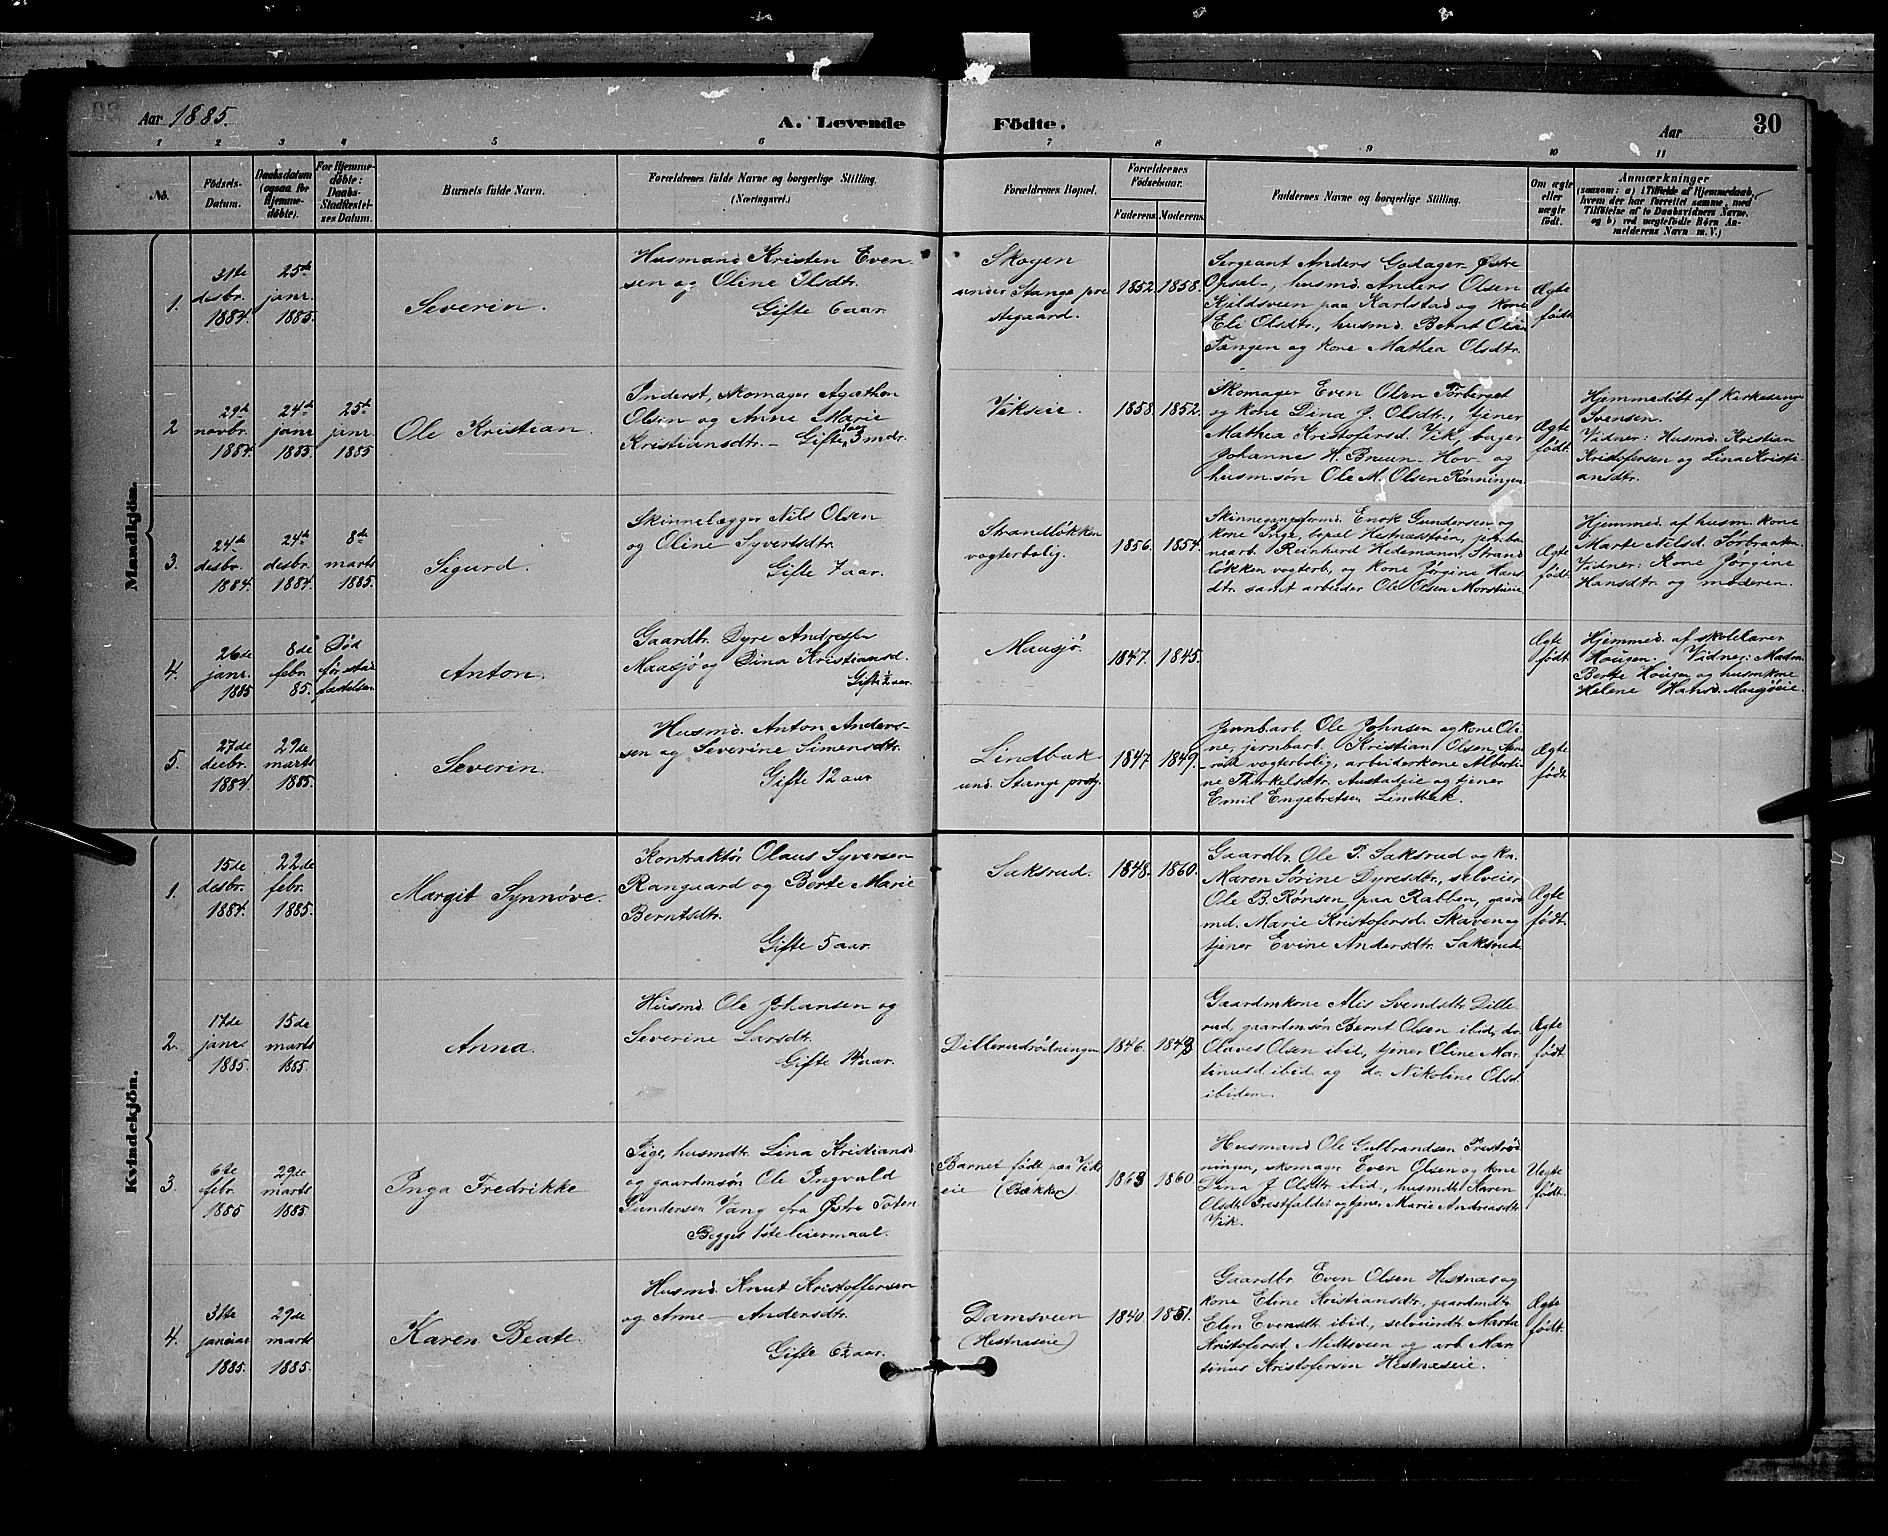 Aar 1885.
A. Levende Födte.
Aar
30
1 2 3 4 5 6 7 8 9 10 11
No.
Födsels-
Datum.
Daabsdatum
(ogsaa for
Hjemme-
döbte).
For Hjemme-
döbte:
Daabs-
Stadfæstel-
ses Datum.
Barnets fulde Navn.
Forældrenes fulde Navne og borgerlige Stilling.
(Næringsvei.)
Forældrenes Bopæl.
Forældrenes
Födselsaar.
Faderens. Moderens.
Faddernes Navne og borgerlige Stilling.
Om ægte
eller
uægte
födt.
Anmærkninger
(saasom: a) i Tilfælde af Hjemmedaab,
hvem der har forrettet samme, med
Tilföielse af to Daabsvidners Navne.
og b) ved uægtefödte Börn An-
melderens Navn m. V.)
Mandkjön.
1.
31te
desbr.
1884.
25de
janr.
1885.
Severin.
Husmand Kristen Even-
sen og Oline Olsdtr.
Gifte 6 aar.
Skogen
under Stange pre-
stegaard.
1852. 1858.
Sergeant Anders Godager Østre
Opsal, husmd. Anders Olsen
Kildsveen paa Karlstad og kone
Eli Olsdtr., husmd. Bernt Olsen
Tangen og kone Mathea Olsdtr.
Ægte
født
2
29de
novbr.
1884.
24de
janr.
1885.
25de
janr.
1885
Ole Kristian.
Inderst, skomager Agathon
Olsen og Anne Marie
Kristiansdtr. Gifte 3 mdr.
Vikseie.
1858. 1852.
Skomager Even Olsen Torberget
og kone Dina J. Olsdtr., tjener
Mathea Kristofersd. Vik, bager
Johannes H. Bruun Hov og
husm.søn Ole M. Olsen Rønningen
Ægte
født.
Hjemmedøbt af kirkesanger
Svensen.
Vidner: Husmd. Kristian
Kristofersen og Lina Kristi-
ansdtr.
3.
24de
desbr.
1884.
24de
desbr.
1884.
8de
marts
1885.
Sigurd.
Skinnelægger Nils Olsen
og Oline Syvertsdtr.
Gifte 7 aar.
Strandløkken
vogterbolig.
1856. 1854.
Skinnegangsformd. Enok Gundersen og
kone Inge, bopæl Hestnæstøien, jernba-
nearb. Reinherd Hedemann, Strand-
løkken vogterb, og kone Jørgine Hans-
dtr. samt arbeider Ole Olsen Morstueie
Ægte
født
Hjemmed. af husm. kone
Marte Nilsd. Sørbraaten.
Vidner: Kone Jørgine
Hansdtr. og moderen.
4.
26de
janr.
1885
8de
febr.
85.
Død
før stad
fæstelsen
Anton.
Gaardbr. Dyre Andresen
Maasjø og Dina Kristiansd.
Gifte ½ aar.
Maasjø.
1847. 1845.
Ægte
født
Hjemmed. af skolelærer
Hougen. Vidner: Madm
Berte Hougen og husmkone
Helene Hansd. Maasjøeie.
5.
27de
desbr.
1884
29de
marts
1885.
Severin.
Husmd. Anton Anders-
sen og Severine Simensdtr.
Gifte 12 aar
Lindbak
und. Stange prstg.
1847. 1849.
Jernbarb. Ole Johnsen og kone Oli-
ne, jernbarb. Kristian Olsen,
vogterbolig, arbeiderkone Alberti-
ne Therkelsdtr. Austadeie og tjener
Emil Engebretsen Lindbak.
Ægte
født.
Kvindekjön.
1.
15de
desbr.
1884.
22de
febr.
1885.
Margit Synnøve.
Kontraktør Olaus Syversen
Ranguard og Berte Marie
Berntsdtr.
Gifte 5 aar.
Saksrud.
1848. 1860.
Gaardbr. Ole T. Saksrud og kn.
Maren Sørine Dyresdtr., selveier
Ole B. Rønsen paa Rabben, gaard-
md. Marie Kristofersd. Skaven og
tjener Evine Andersdtr. Saksrud
Ægte
født.
2.
17de
janr.
1885.
15de
marts
1885.
Anna.
Husmd. Ole Johansen og
Severine Larsdtr.
Gifte 14 aar.
Dillerudrødningen
1846. 1843
Gaardmkone Alis Svendsdtr. Dille-
rud, gaardmsøn Bernt Olsen ibid, do.
Olaves Olsen ibid, tjener Oline Mar-
tinusd. ibid og do. Nikoline Olsd.
ibidem.
Ægte
født.
3.
6te
febr.
1885
29de
marts
1885.
Inga Fredrikke
Pige, husmdtr. Lina Kristiansd.
og gaardmsøn Ole Ingvald
Gundersen Vang fra Østre Toten
Begges 1ste leiermaal.
Barnet født paa Vik-
eie (Bækken)
1863 1860
Husmand Ole Gulbrandsen Prestrød-
ningen, skomager Even Olsen og kone
Dina J. Olsdtr ibid, husmdtr Karen
Olsdtr. Prestfaldet og tjener Marie Andreasdtr.
Vik.
Uægte
født.
4.
31te
januar
1885.
29de
marts
1885.
Karen Beate.
Husmd. Knut Kristoffersen
og Anne Andersdtr.
Gifte 6½ aar.
Damsveen
(Hestnæseie)
1840. 1851.
Gaardbr. Even Olsen Hestnæs og
kone Eline Kristiansdtr, gaardmdtr.
Elen Evensdtr ibid, selveierdtr Marte
Kristofersd. Midtsveen og arb. Mar-
tinus Kristofersen Hestnæseie.
Ægte
født.